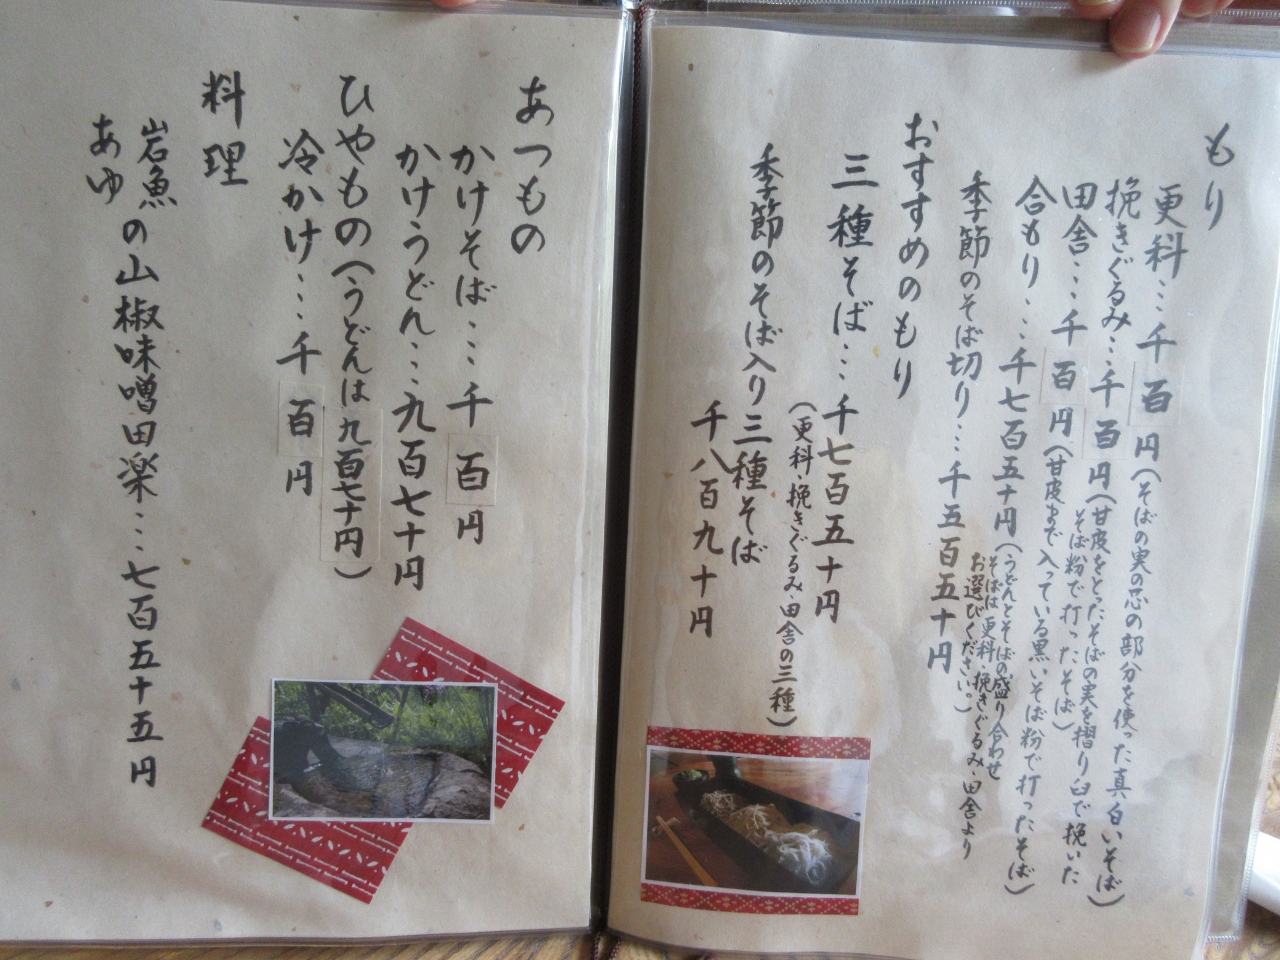 もり
更科…千百円(そばの実の芯の部分を使った真白いそば)
挽きぐるみ…千百円(甘皮をとったそばの実を摺り臼で挽いた
そば粉で打ったそば)
田舎…千百円(甘皮まで入っている黒いそば粉で打ったそば)
合もり…千七百五十円(うどんとそばの盛り合わせ
そばは更科・挽きぐるみ・田舎より
お選びください。)
季節のそば切り…千五百五十円
おすすめのもり
三種そば…千七百五十円
(更科・挽きぐるみ・田舎の三種)
季節のそば入り三種そば
千八百九十円
あつもの
かけそば…千百円
かけうどん…九百七十円
ひやもの(うどんは九百七十円)
冷かけ…千百円
料理
岩魚
あゆ
の山椒味噌田楽…七百五十五円